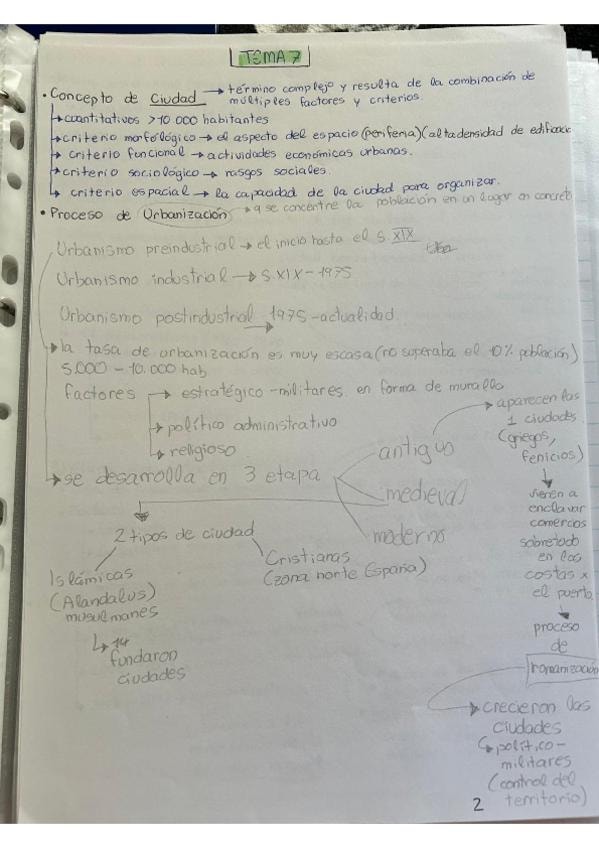 TEMA 7
• Concepto de Ciudad → término complejo y resulta de la combinación de
múltiples factores y criterios.
↳ cuantitativos > 10 000 habitantes
↳ criterio morfológico → el aspecto del espacio (periferia) (alta densidad de edificac
↳ criterio funcional → actividades económicas urbanas.
↳ criterio sociológico → rasgos sociales.
↳ criterio espacial → la capacidad de la ciudad para organizar.
• Proceso de Urbanización → q se concentre la población en un lugar en concreto
Urbanismo preindustrial → el inicio hasta el s. XIX
Urbanismo industrial → S. XIX - 1975
Urbanismo postindustrial 1975 - actualidad
→ la tasa de urbanización es muy escasa (no superaba el 10% población)
5.000 - 10.000 hab
factores → estratégico - militares en forma de muralla
→ político administrativo
→ religioso
→ se desarrolla en 3 etapa
antiguo
medieval
moderno
2 tipos de ciudad
Islámicas
(Alandalus)
musulmanes
↳ 14
fundaron
ciudades
Cristianas
(zona norte España)
→ aparecen las
1 ciudades
(griegos,
fenicios)
vienen a
enclavar
comercios
sobretodo
en las
costas x
el puerto
proceso
de
romanización
→ crecieron las
ciudades
↳ polític o -
militares
(control del
territorio)
2